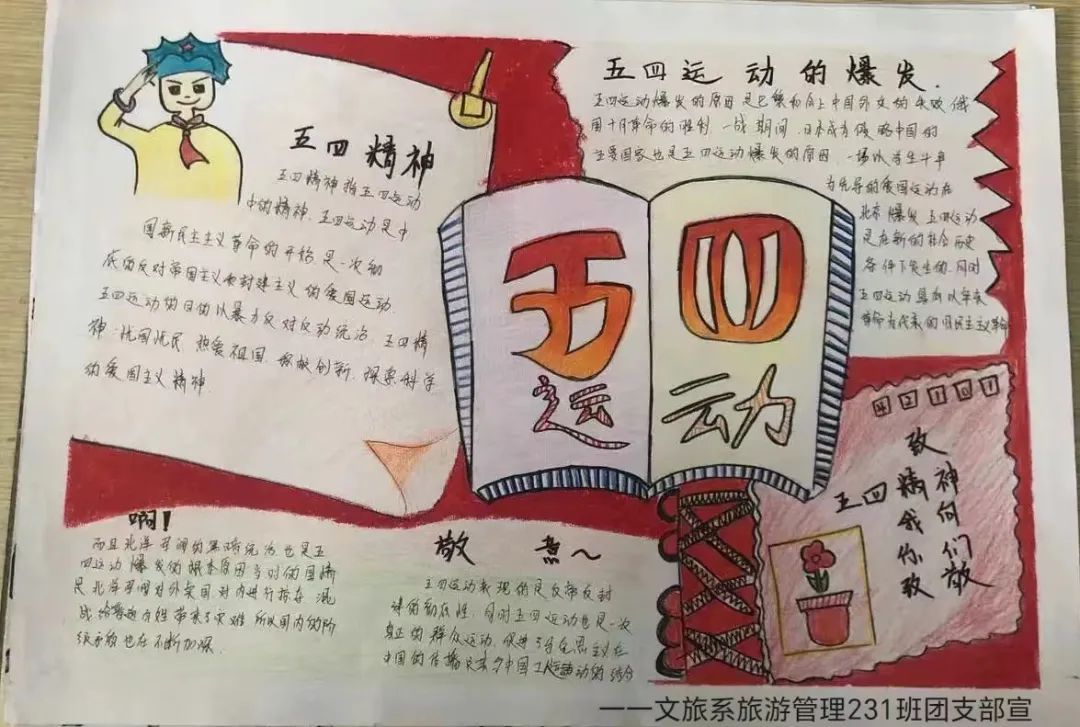 五四精神
五四精神指五四运动
中的精神、五四运动是中
国新民主主义革命的开始,是一次彻
底的反对帝国主义和封建主义的爱国运动.
五四运动的目的以暴力反对反动统治、五四精
神:忧国忧民、热爱祖国、创新、探索科学
的爱国主义精神.
五四运动的爆发.
五四运动爆发的原因是巴黎和会上中国外交的失败、俄
国十月革命的胜利、一战期间、日本成为侵略中国的
主要国家也是五四运动爆发的原因、一场以学生斗争
为先导的爱国运动在
北京爆发.五四运动
是在新的社会历史
条件下发生的.同时
五四运动是
革命为代表的旧民主主义革命
五四
运动
42101
致
五四精神
我向
你们
致敬
啊!
而且北洋军阀的黑暗统治也是五
四运动爆发的根本原因当时的国情
是北洋军阀对外卖国对内进行掠夺、混
战给普通百姓带来了灾难所以国内的阶
级矛盾也在不断加深.
敬 煮~
五四运动表现的是反帝反封
建的彻底性、同时五四运动也是一次
真正的群众运动、促进了马克思主义在
中国的传播及其与中国工人运动的结合
——文旅系旅游管理231班团支部宣